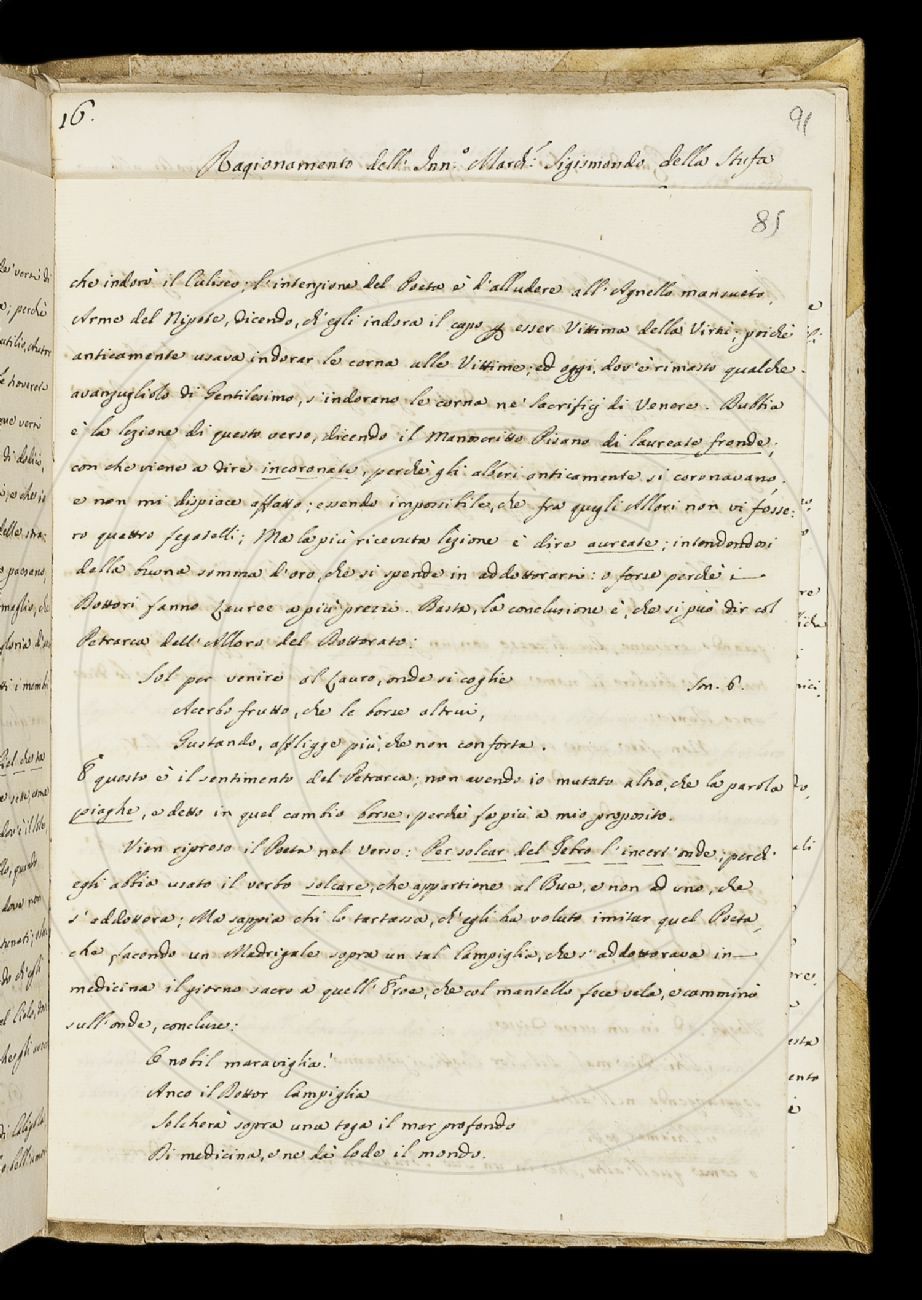 16.
91
Ragionamento dell' Inn.º March.e Sigismondo della Stufa
85
che indorò il Culiseo; l'intenzione del Poeta è d'alludere all'Agnello mansueto,
Arme del Nipote, dicendo, ch'egli indora il capo per esser Vittima della Virtù; poichè
anticamente usava indorar le corna alle Vittime; ed oggi, dov'è rimasto qualche
avanzugliolo di Gentilesimo, s'indorano le corna ne' sacrifizj di Venere. Dubbia
è la lezione di questo verso, dicendo il Manoscritto Pisano di laureate fronde;
con che viene a dire incoronate, perchè gli alberi anticamente si coronavano,
e non mi dispiace affatto; essendo impossibile, che fra quegli Allori non vi fosse-
ro quattro fegatelli; Ma la più ricevuta lezione è dire aureate; intendendosi
della buona somma d'oro, che si spende in addottorarsi: o forse perchè i
Dottori fanno Lauree a più prezzi. Basta, la conclusione è, che si può dir col
Petrarca dell'Alloro del Dottorato:
Sol per venire al Lauro, onde si coglie
Son. 6.
Acerbo frutto, che le borse altrui,
Gustando, affligge più, che non conforta.
E questo è il sentimento del Petrarca; non avendo io mutato altro, che la parola
piaghe, e detto in quel cambio borse, perchè fa più a mio proposito.
Vien ripreso il Poeta nel verso: Per solcar del Tebro l'incert'onde; perch'
egli abbia usato il verbo solcare, che appartiene al Bue, e non ad uno, che
s'addottora; Ma sappia chi lo tartassa, ch'egli ha voluto imitar quel Poeta,
che facendo un Madrigale sopra un tal Campiglia, che s'addottorava in
medicina il giorno sacro a quell'Eroe, che col mantello fece vela, e camminò
sull'onde, concluse:
E nobil maraviglia!
Anco il Dottor Campiglia
Solcherà sopra una toga il mar profondo
Di medicina, e ne dà lode il mondo.